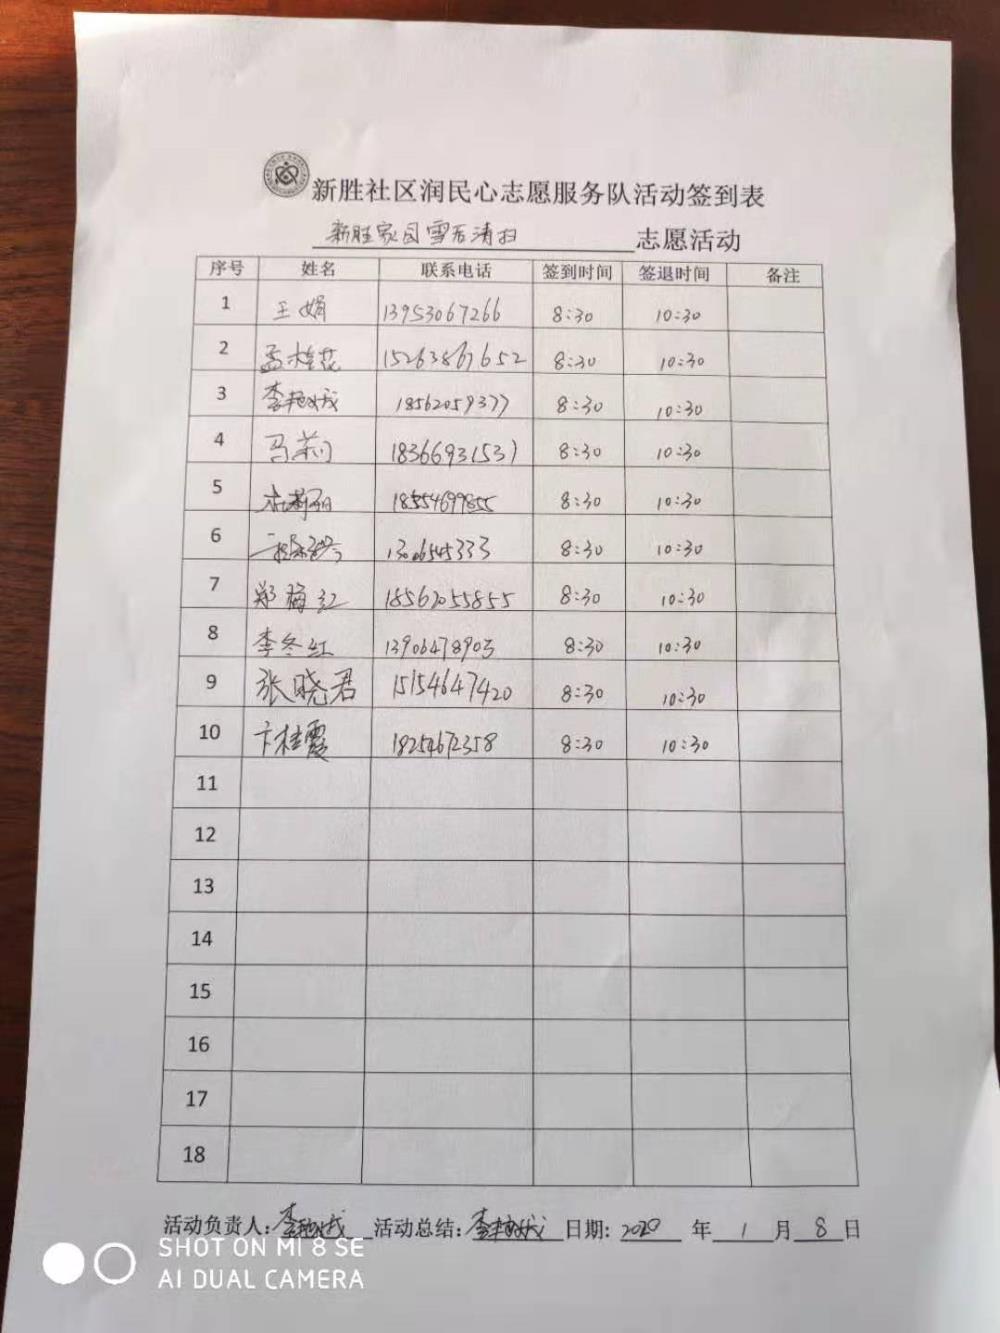 新胜社区润民心志愿服务队活动签到表
新胜家园雪后清扫 志愿活动
序号 姓名 联系电话 签到时间 签退时间 备注
1 王娟 13953067266 8:30 10:30
2 孟桂花 15263867652 8:30 10:30
3 李艳娥 18562059377 8:30 10:30
4 马莉 18366931537 8:30 10:30
5 18554699855 8:30 10:30
6 8:30 10:30
7 郑梅红 18562055855 8:30 10:30
8 李冬红 13906478903 8:30 10:30
9 张晓君 15154647420 8:30 10:30
10 卞桂霞 18254672358 8:30 10:30
11
12
13
14
15
16
17
18
活动负责人: 李艳娥 活动总结: 李艳娥 日期: 2020 年 1 月 8 日
SHOT ON MI 8 SE
AI DUAL CAMERA